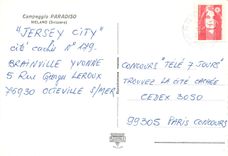 Campeggio PARADISO
MELANO (Svizzera)
"JERSEY CITY"
cité cachée N° 179.
BRAINVILLE YVONNE
5 Rue Georges LEROUX
76930 OCTEVILLE S/MER
CONCOURS "TELE 7 JOURS"
TROUVEZ LA CITÉ CACHÉE
CEDEX 3050
99305 PARIS CONCOURS